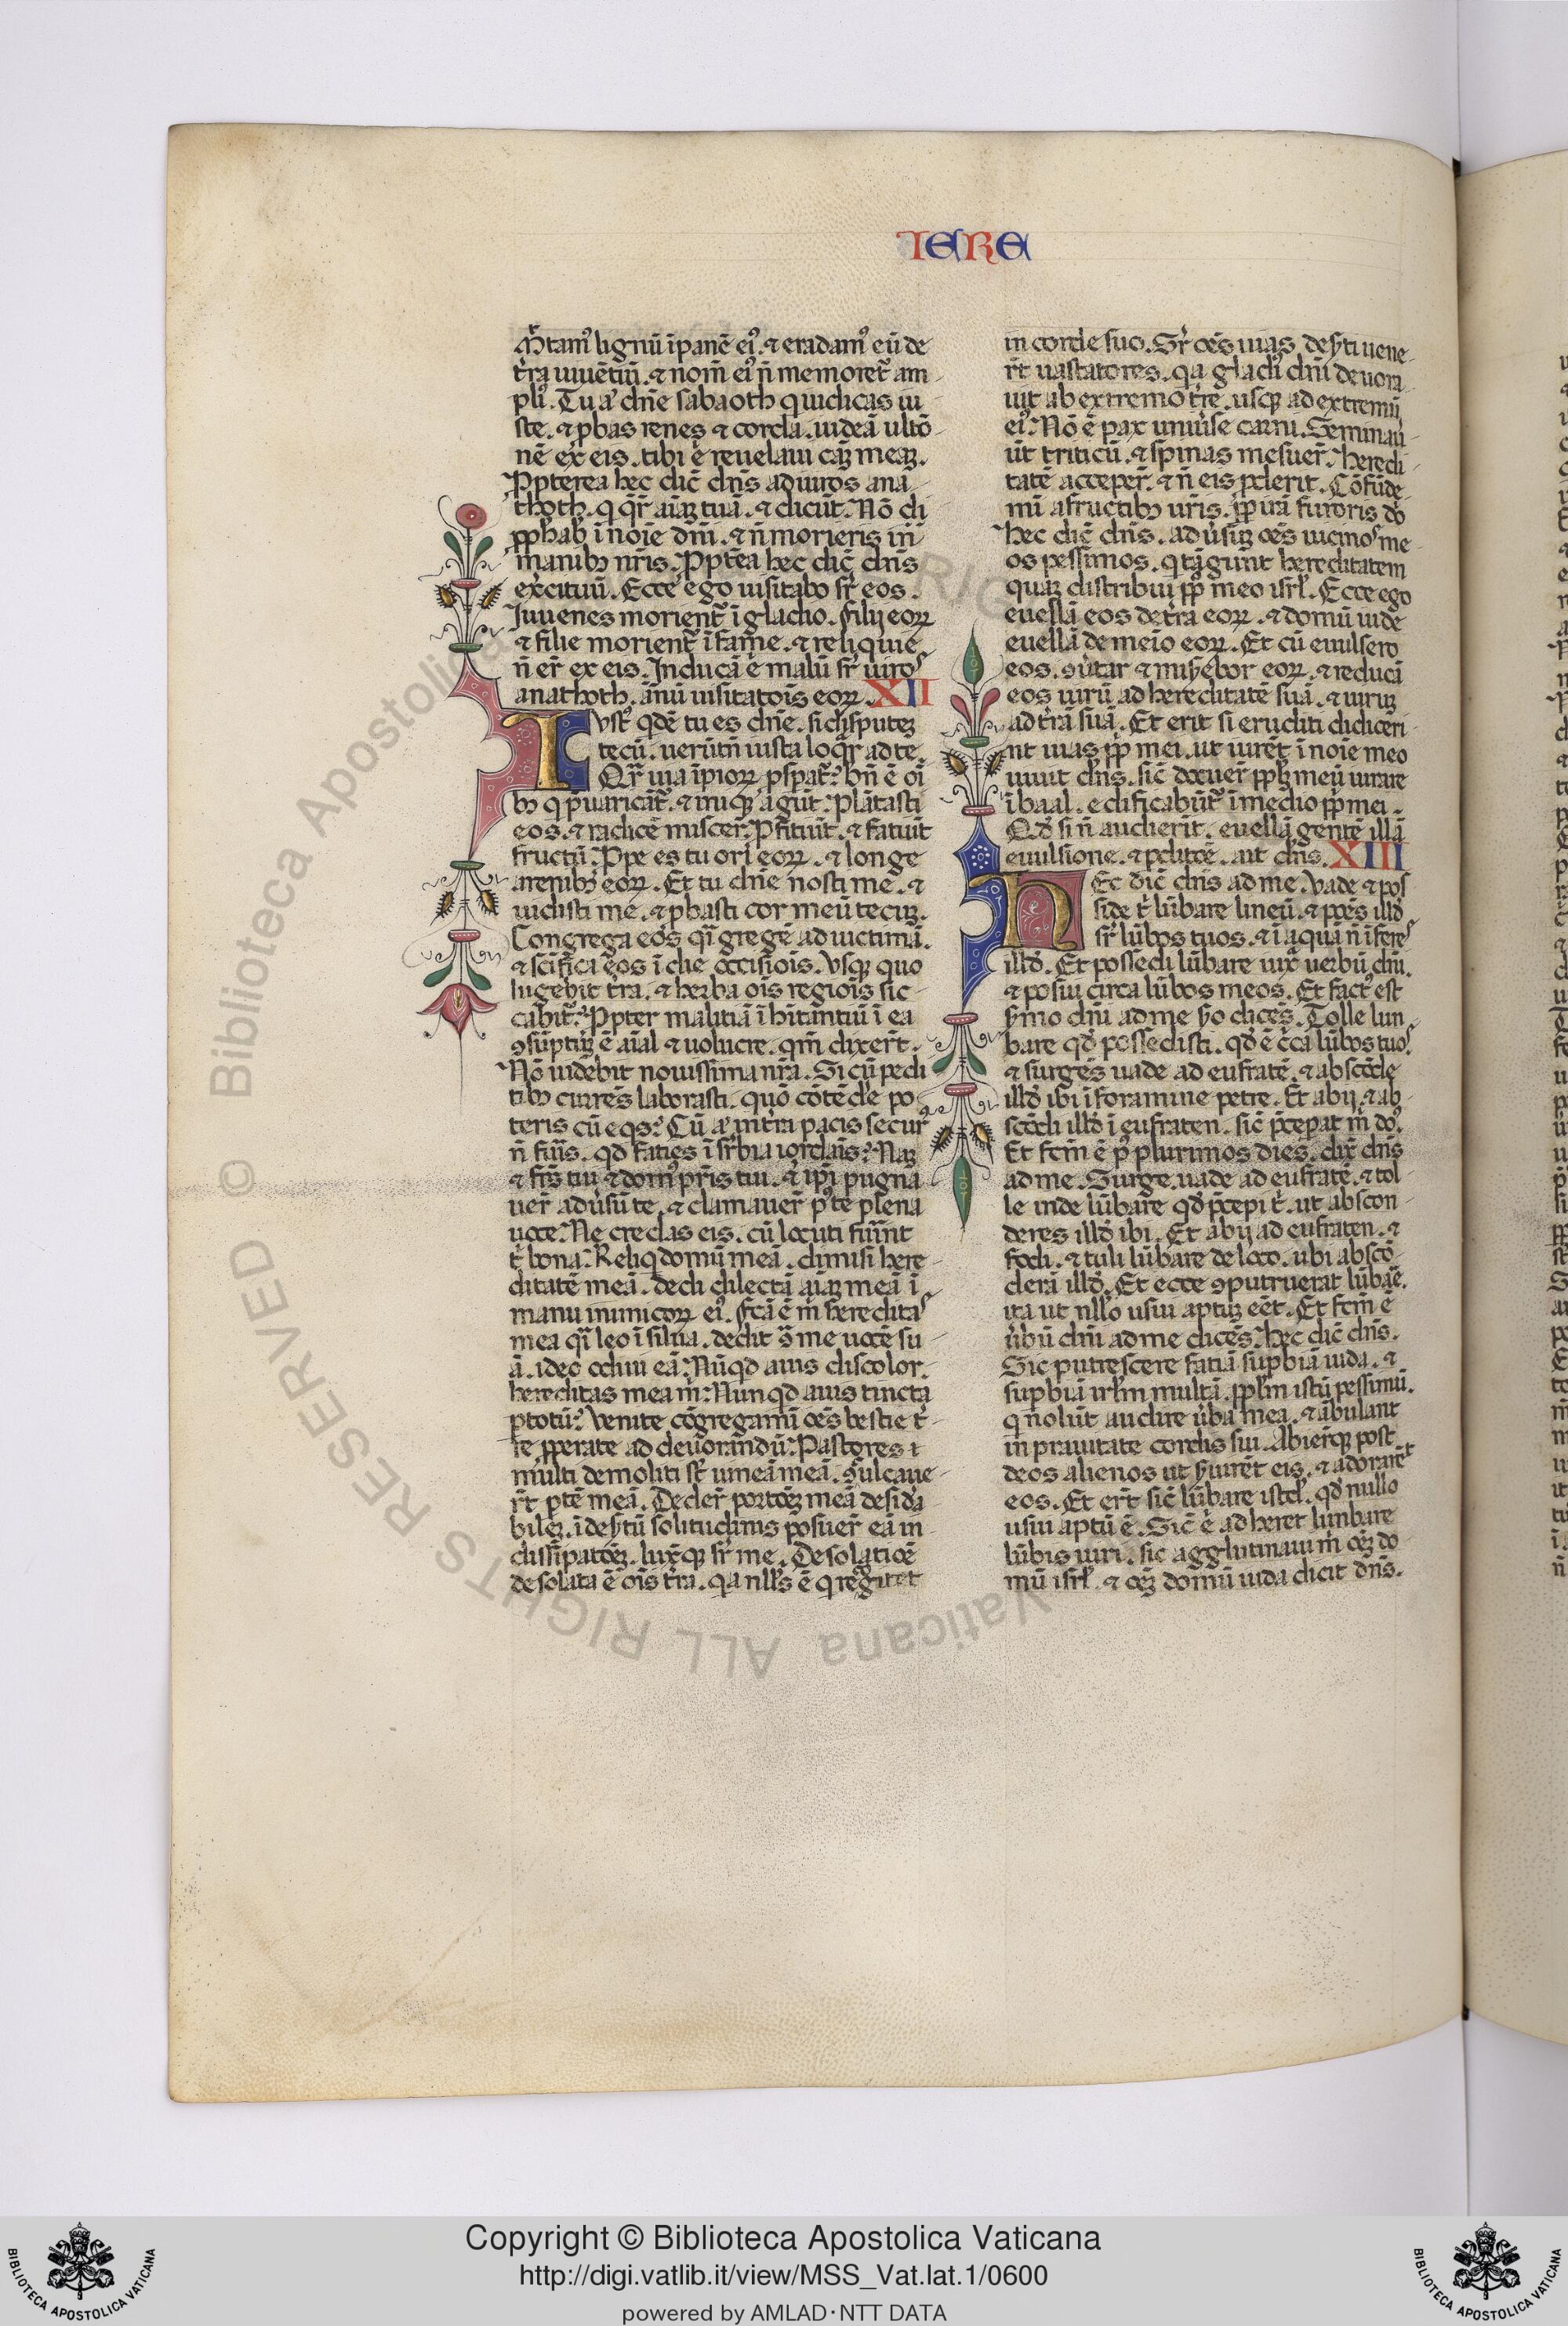 IERE
Mitam᾽ lignũ ĩ panẽ ei᾽. ⁊ eradam᾽ eũ de
t̃ra uiuẽtiũ. ⁊ nom̃ ei᾽ ñ memoret᷑ am
pli᾽. Tu a᾽ dñe sabaoth q iudicas iu
ste. ⁊ ꝓbas renes ⁊ corda. uideã ultõ
nẽ ex eis. tibi .n. reuelaui cãꝫ meaꝫ.
Ꝓpterea hec dic̃ dñs ad uiros ana
thoth. q q̃r̃ aĩaꝫ tuã. ⁊ dicũt. Nõ di
ꝓphab᾽ ĩ noĩe dñi. ⁊ ñ morieris in
manibꝰ nr̃is. Ꝓpt̃ea hec dic̃ dñs
exẽcituũ. Ecce ego uisitabo sr̃ eos.
Iuuenes morient᷑ ĩ gladio. filij eoꝝ
⁊ filie morient᷑ ĩ fame. ⁊ reliquie
ñ er̃ ex eis. Inducã .n. malũ sr̃ uiros
anathoth. ãnũ uisitatõis eoꝝ. XII
Iust᾽ qdẽ tu es dñe. si disputeꝫ
tecũ. uerũtñ iusta loq̃r ad te.
Q̃r̃ uia ĩpioꝝ ꝓsꝑat᷑? bñ ẽ oĩ
bꝰ q p̃uaricãt᷑. ⁊ iniq̃ agũt? plãtasti
eos. ⁊ radicẽ miser̃. Ꝓfitiũt. ⁊ fatiũt
fructũ. Ꝓpe es tu ori eoꝝ. ⁊ longe
a renibꝰ eoꝝ. Et tu dñe nosti me. ⁊
uidisti me. ⁊ ꝓbasti cor meũ tecuꝫ.
Congrega eos q̃i gregẽ ad uictimã.
⁊ scĩfica eos ĩ die occisiõis. Vsq̃ quo
lugebit t̃ra. ⁊ herba oĩs regiõis sic
cabit᷑? Ꝓpter malitiã ĩhitãntiũ ĩ ea
ꝯsũptuꝫ ẽ aĩal ⁊ uolucre. qm̃ dixer̃t.
Nõ uidebit nouissima nr̃a. Si cũ pedi
tibꝰ currẽs laborasti. quõ cõtẽde᾽ po
teris cũ eqs? Cũ a᾽ in t̃ra pacis secur᾽
ñ fuĩs. qd faties ĩ suꝑbia iordãis? Naꝫ
⁊ frĩs tui ⁊ dom᾽ pr̃is tui. ⁊ ip̃i pugna
uer̃ adũsũ te. ⁊ clamauer̃ p᾽ te plena
uoce. Ne credas eis. cũ locuti fuĩnt
t᾽ bona. Reliq domũ meã. dimisi here
ditatẽ meã. dedi dilectã aĩaꝫ meã ĩ
manu inimicoꝝ ei᾽. Fc̃ã ẽ m̃ heredita᾽
mea q̃i leo ĩ silua. dedit ꝯ̃ me uocẽ su
ã. ideo odiui eã. Nũqd auis discolor
hereditas mea m̃? Nunqd auis tincta
ꝑ totũ? Venite cõgregamĩ oẽs bestie t̃
re ꝓperate ad deuorandũ. Pastores
multi demoliti st̃ uineã meã. ꝯculcaue
r̃t ꝑtẽ meã. Deder̃ portõeꝫ meã desida
bileꝫ. ĩ deẽtũ solitudinis posuer̃ eã in
dissipatõeꝫ. luxitq̃ sr̃ me. Desolatiõe
desolata ẽ oĩs t̃ra. q̃a nllꝰs ẽ q recogitet
in corde suo. Sr̃ oẽs uias deẽti uene
r̃t uastatores. q̃a gladi᾽ dñi deuora
uit ab extremo t̃re. usq̃ ad extremũ
ei᾽. Nõ ẽ pax uniũse carni. Seminau
ũt triticũ. ⁊ spinas mesuer̃. heredi
tatẽ acceper̃. ⁊ ñ eis ꝓderit. Cõfũde
mĩ a fructibꝰ ur̃is. ꝓp̃ irã furoris dñi
hec dic̃ dñs. adũsuꝫ oẽs uicinos me
os pessimos. q tãgũnt hereditatem
quaꝫ distribui pp̃ᷣ meo isrl̃. Ecce ego
euellã eos de t̃ra eoꝝ. ⁊ domũ iude
euellã de me᾽io eoꝝ. Et cũ euulsero
eos. ꝯũtar ⁊ misẽbor eoꝝ. ⁊ reducã
eos uirũ ad hereditatẽ suã. ⁊ uiruꝫ
ad t̃rã suã. Et erit si eruditi didiceri
nt uias pp̃ᷣ mei. ut iurẽt ĩ noĩe meo
uiuit dñs. sic̃ docuer̃ pp̃ᷣꝫ meũ iurare
ĩ baal. edificabũt᷑ ĩ medio pp̃ᷣ mei.
Qd̃ si ñ audierĩt. euellã gentẽ illã
euulsione. ⁊ ꝑditiõe. ait dñs. XIII
Hec dic̃ dñs ad me. Vade ⁊ pos
side t᾽ lũbare lineũ. ⁊ põẽs illd̃
sr̃ lũbos tuos. ⁊ ĩ aquã ñ ĩferes
illd̃. Et possedi lũbare iux̃ uerbũ dñi.
⁊ posui circa lũbos meos. Et fact᾽ est
ẽmo dñi ad me ẽo dicẽs. Tolle lun
bare qd̃ possedisti. qd̃ ẽ c̃ca lũbos tuo᾽.
⁊ surgẽs uade ad eufratẽ. ⁊ abscõde
illd̃ ibi ĩ foramine petre. Et abij. ⁊ ab
scõdi illd̃ ĩ eufraten. sic̃ p̃ceꝑat m̃ dñs.
Et fcm̃ ẽ p᾽ plurimos dies. dix̃ dñs
ad me. Surge. uade ad eufratẽ. ⁊ tol
le inde lũbare qd̃ p̃cepi t᾽. ut abscon
deres illd̃ ibi. Et abij ad eufraten. ⁊
fodi. ⁊ tuli lũbare de loco. ubi abscõ
derã illd̃. Et ecce ꝯputruerat lũbare.
ita ut nllo usui aptuꝫ eẽt. Et fcm̃ ẽ
ũbũ dñi ad me dicẽs. hec dic̃ dñs.
Sic putrescere fatiã suꝑbiã iuda. ⁊
suꝑbiã irl̃m multã. ppl̃m istũ pessimũ.
q nolũt audire ũba mea. ⁊ ãbulant
in prauitate cordis sui. Abierũtq̃ post
deos alienos ut ẽuirẽt eis. ⁊ adorarẽt
eos. Et er̃t sic̃ lũbare istd̃. qd̃ nullo
usui aptũ ẽ. Sic̃ .n. adheret lunbare
lũbis uiri. sic agglutinaui m̃ oẽꝫ do
mũ isrl̃. ⁊ oẽꝫ domũ iuda dicit dñs.
© Biblioteca Apostolica Vaticana ALL RIGHTS RESERVED
Copyright © Biblioteca Apostolica Vaticana
http://digi.vatlib.it/view/MSS_Vat.lat.1/0600
powered by AMLAD·NTT DATA
BIBLIOTECA APOSTOLICA VATICANA
BIBLIOTECA APOSTOLICA VATICANA